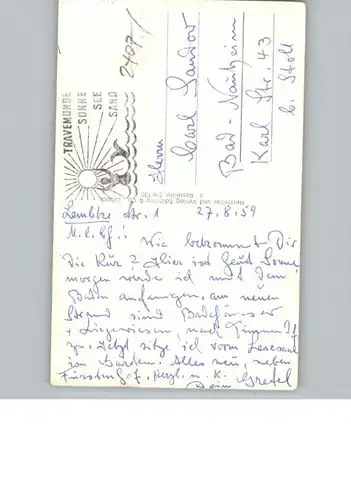 TRAVEMÜNDE
SONNE
SEE
SAND
2407/
Herrn
Carl Sandow
Bad-Nauheim
Karl Str. 43
b. Stoll
Hersteller und Verlag Schöning & Co., Lübeck
Lembke Str. 1 27.8.59
M. l. Wie bekommt Dir
die Kur? Hier ist heut Sonne,
morgen werde ich mit dem
Baden anfangen, am neuen
Strand sind Badehäuser
+ Liegewiesen, nach
zu. Jetzt sitze ich vorm Lesesaal
im Garten. Alles neu, neben
Fürstenhof. Herzl. u. K. Gretel
Deine